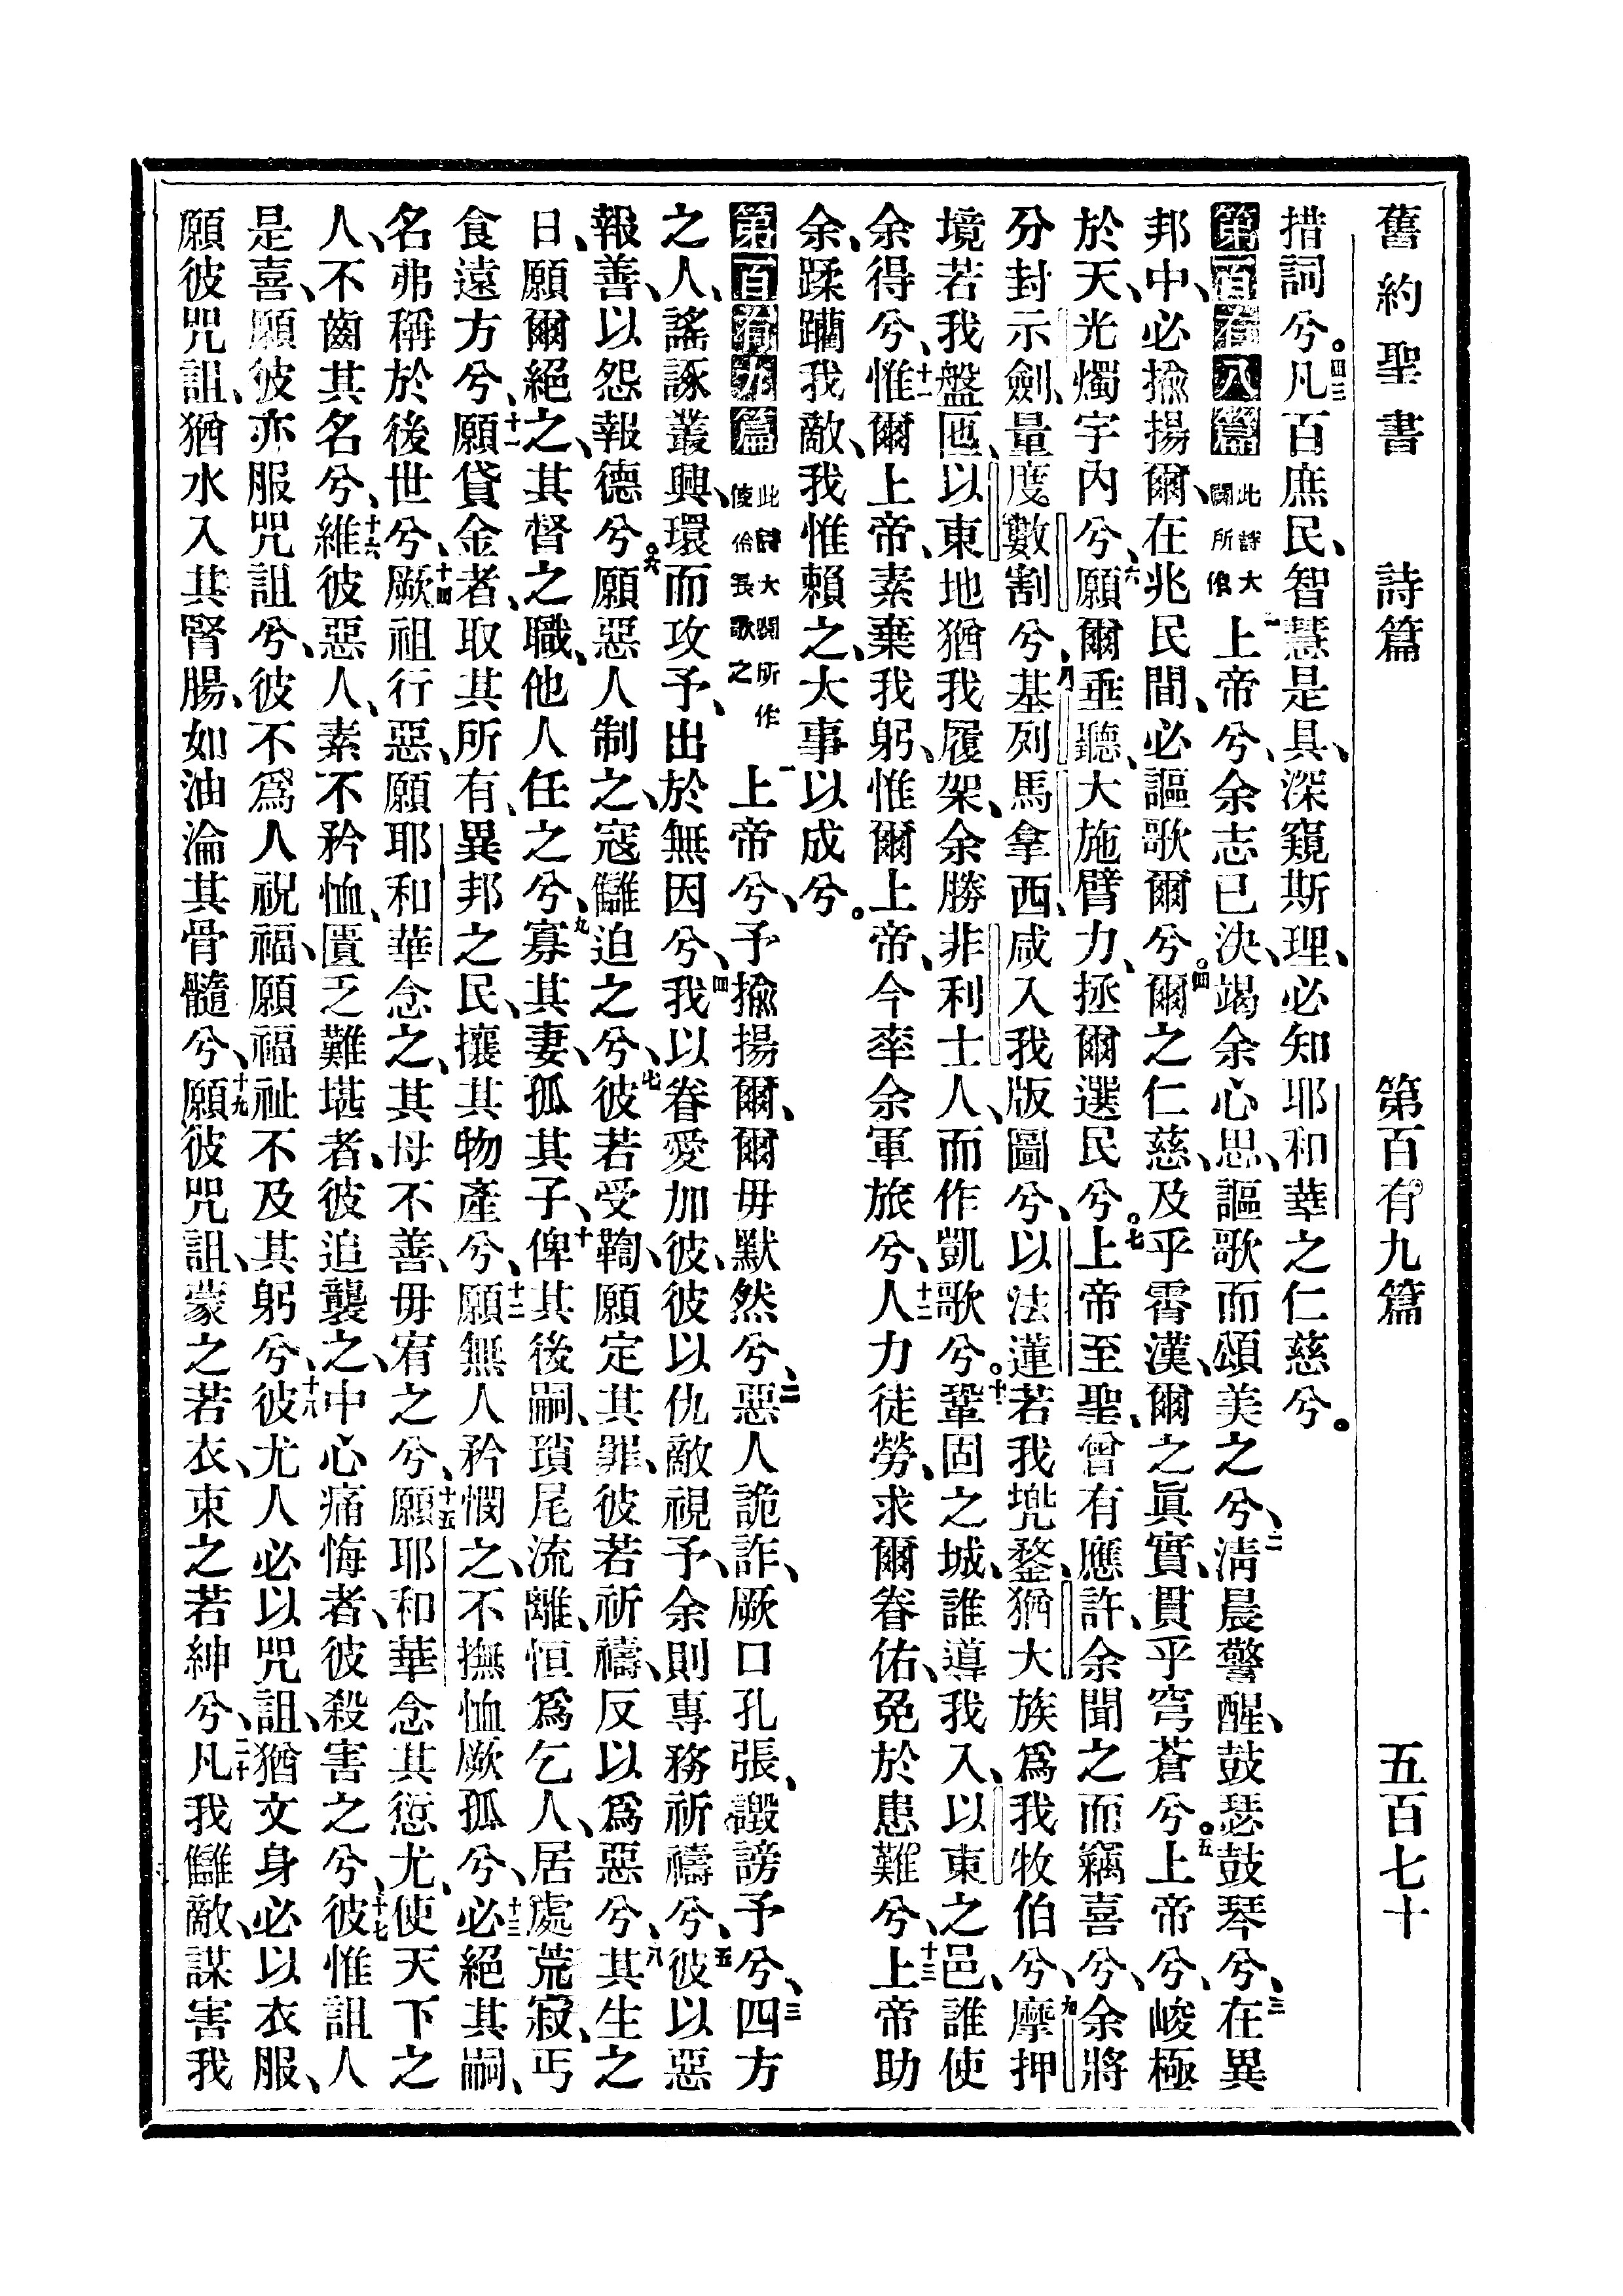 舊約聖書　詩篇　第百有九篇　五百七十
措詞兮。四三凡百庶民、智慧是具、深窺斯理、必知耶和華之仁慈兮。
第百有八篇 此詩大闢所作 一上帝兮、余志已決、竭余心思、謳歌而頌美之兮、二淸晨警醒、鼓瑟鼓琴兮、三在異
邦中、必揄揚爾、在兆民間、必謳歌爾兮。四爾之仁慈、及乎霄漢、爾之眞實、貫乎穹蒼兮。五上帝兮、峻極
於天、光燭宇內兮、六願爾垂聽、大施臂力、拯爾選民兮。七上帝至聖、曾有應許、余聞之而竊喜兮、余將
分封示劍、量度數割兮、八基列馬拿西、咸入我版圖兮、以法蓮若我兠鍪、猶大族爲我牧伯兮、九摩押
境若我盤匜、以東地猶我履架、余勝非利士人、而作凱歌兮。十鞏固之城、誰導我入、以東之邑、誰使
余得兮、十一惟爾上帝、素棄我躬、惟爾上帝、今率余軍旅兮、十二人力徒勞、求爾眷佑、免於患難兮、十三上帝助
余、蹂躪我敵、我惟賴之、大事以成兮。
第百有九篇 此詩大闢所作使伶長歌之 一上帝兮、予揄揚爾、爾毋默然兮、二惡人詭詐、厥口孔張、譭謗予兮、三四方
之人、謠諑叢興、環而攻予、出於無因兮、四我以眷愛加彼、彼以仇敵視予、余則專務祈禱兮、五彼以惡
報善、以怨報德兮。六願惡人制之、寇讎迫之兮、七彼若受鞫、願定其罪、彼若祈禱、反以爲惡兮、八其生之
日、願爾絕之、其督之職、他人任之兮、九寡其妻、孤其子、十俾其後嗣、瑣尾流離、恒爲乞人、居處荒寂、丐
食遠方兮、十一願貸金者、取其所有、異邦之民、攘其物產兮、十二願無人矜憫之、不撫恤厥孤兮、十三必絕其嗣、
名弗稱於後世兮、十四厥祖行惡、願耶和華念之、其母不善、毋宥之兮、十五願耶和華念其愆尤、使天下之
人、不齒其名兮、十六維彼惡人、素不矜恤、匱乏難堪者、彼追襲之、中心痛悔者、彼殺害之兮、十七彼惟詛人
是喜、願彼亦服咒詛兮、彼不爲人祝福、願福祉不及其躬兮、十八彼尤人必以咒詛、猶文身必以衣服、
願彼咒詛、猶水入其腎腸、如油淪其骨髓兮、十九願彼咒詛、蒙之若衣、束之若紳兮、二十凡我讎敵、謀害我